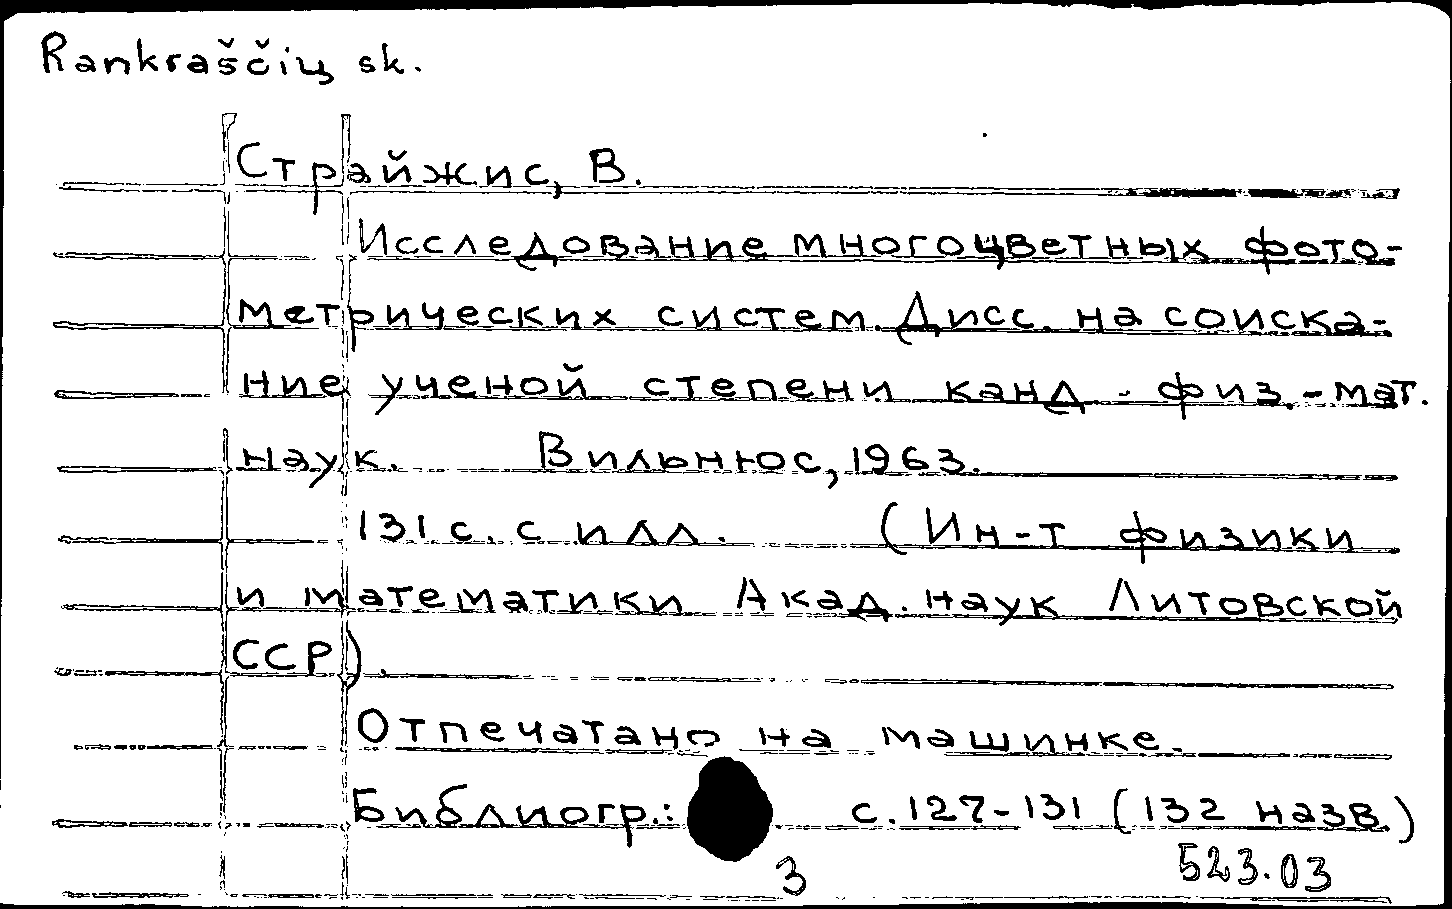 Rankraščių sk.
Страйжис, В.
Исследование многоцветных фото-
метрических систем. Дисс. на соиска-
ние ученой степени канд - физ.-мат.
наук. Вильнюс, 1963.
131 с. с илл. (Ин-т физики
и математики Акад. наук Литовской
ССР).
Отпечатано на машинке.
Библиогр.: с. 127-131 (132 назв.)
3 523.03